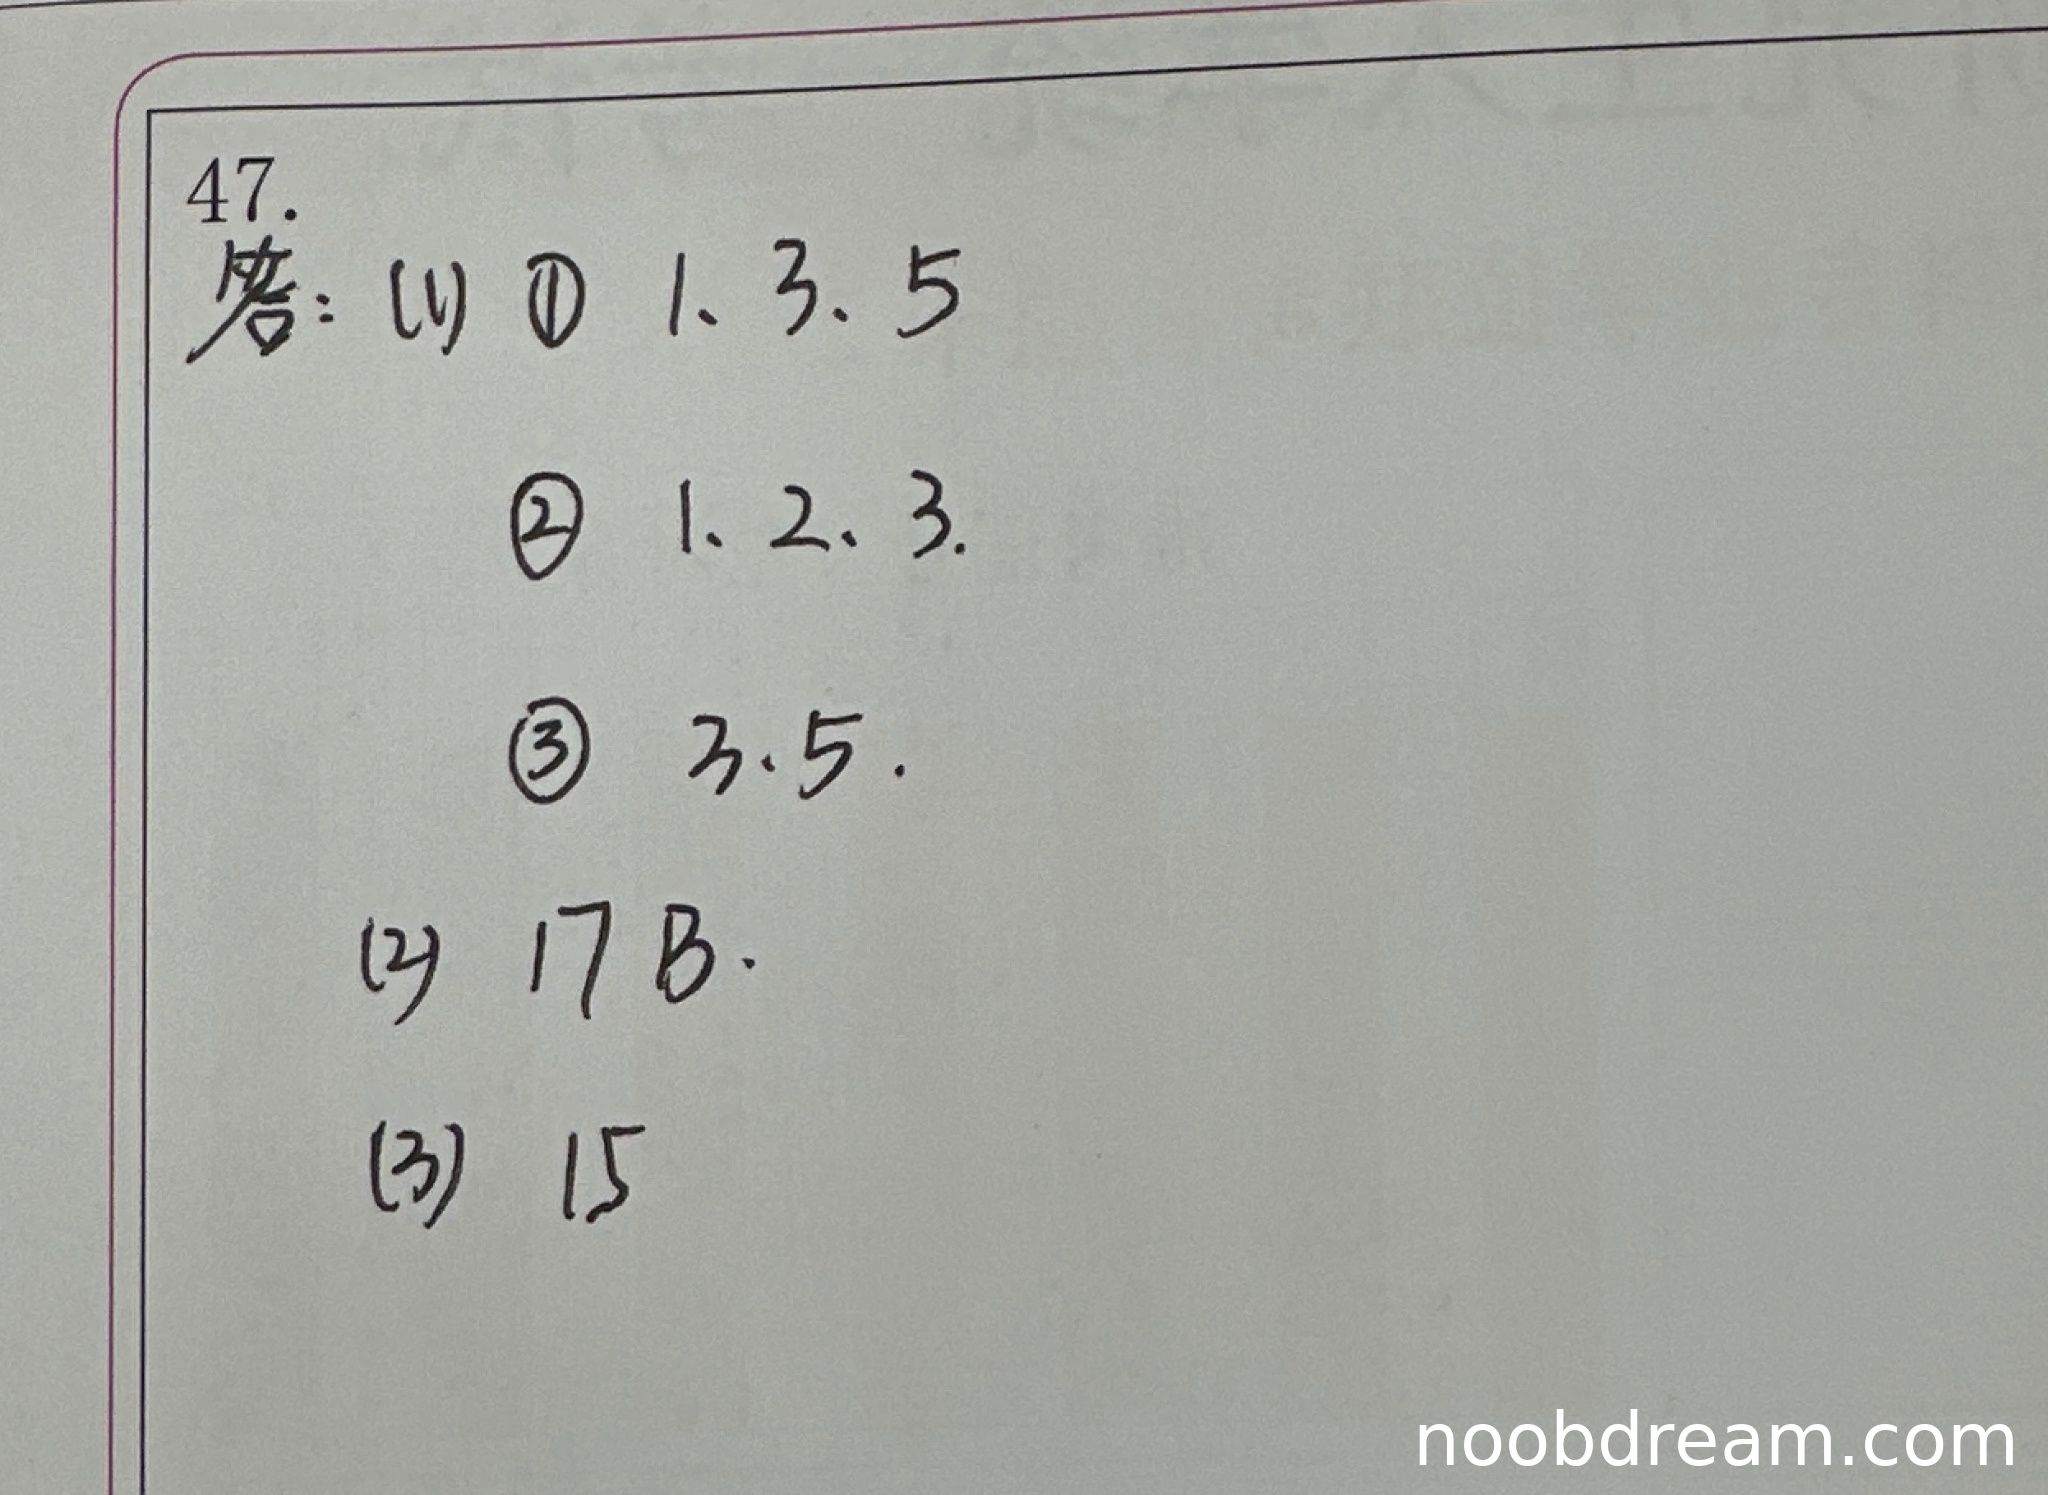 47.
答: (1) ① 1、3、5
② 1、2、3.
③ 3、5.
(2) 17 B.
(3) 15
noobdream.com